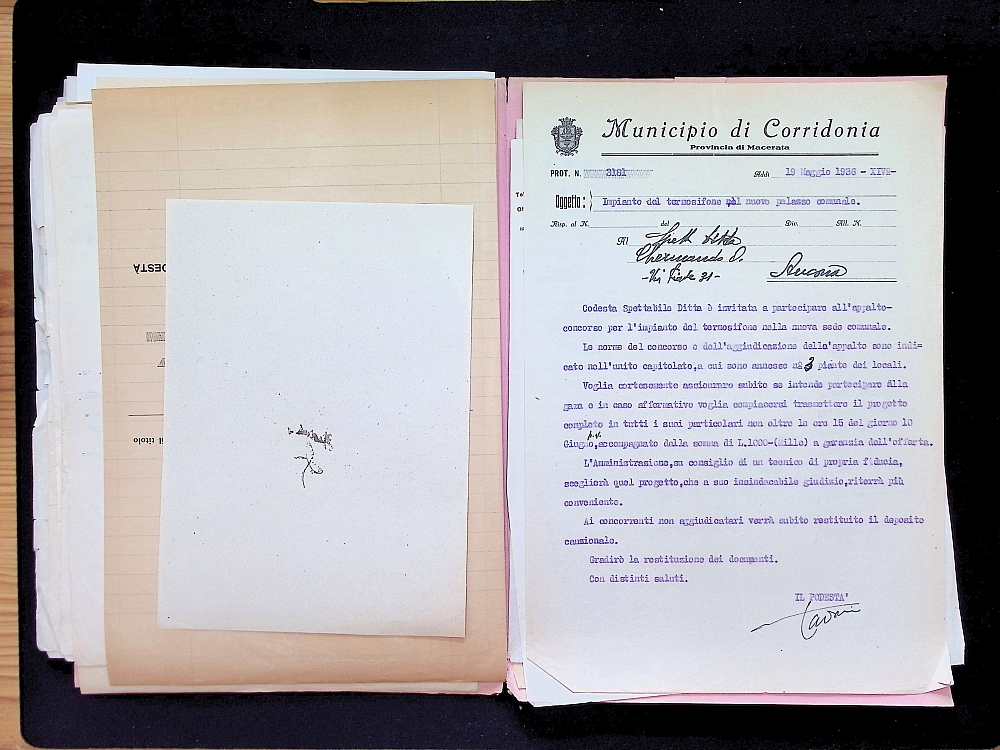 ODESTÀ
il titolo
Municipio di Corridonia
Provincia di Macerata
PROT. N. 3181 Addì 19 Maggio 1936 - XIVº-
Oggetto: Impianto del termosifone nel nuovo palazzo comunale.
Risp. al N. del Div. All. N.
Al Spett. Ditta
O.
-Via 31- Ancona
Codesta Spettabile Ditta è invitata a partecipare all'appalto-
concorso per l'impianto del termosifone nella nuova sede comunale.
Le norme del concorso e dell'aggiudicazione della'appalto sono indi=
cate nell'unito capitolato,a cui sono annesse nº 3 piante dei locali.
Voglia cortesemente assicurare subito se intende partecipare alla
gara e in caso affermativo voglia compiacersi trasmettere il progetto
completo in tutti i suoi particolari non oltre le ore 15 del giorno 10
Giugno p.v.,accompagnato dalla somma di L.1000-(Mille) a garanzia dell'offerta.
L'Amministrazione,su consiglio di un tecnico di propria fiducia,
sceglierà quel progetto,che a suo insindacabile giudizio,riterrà più
conveniente.
Ai concorrenti non aggiudicatari verrà subito restituito il deposito
cauzionale.
Gradirò la restituzione dei documenti.
Con distinti saluti.
IL PODESTA'